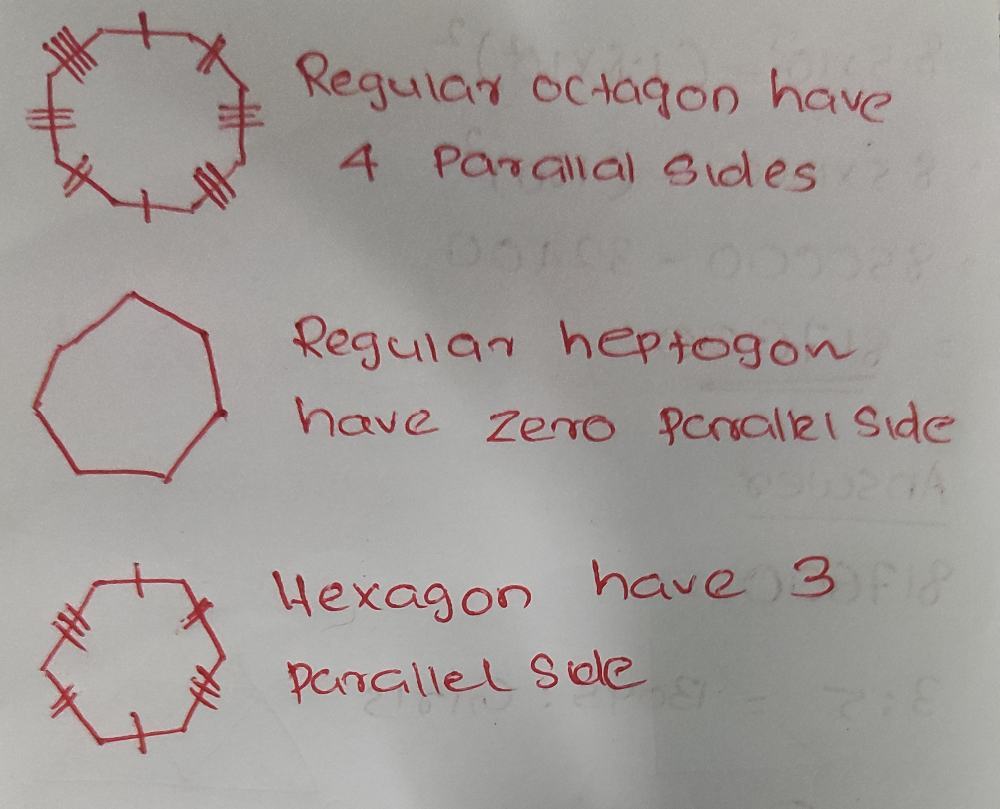 Regular octagon have
4 Parallal Sides
Regular heptogon
have zero parallel Side
Hexagon have 3
parallel Side